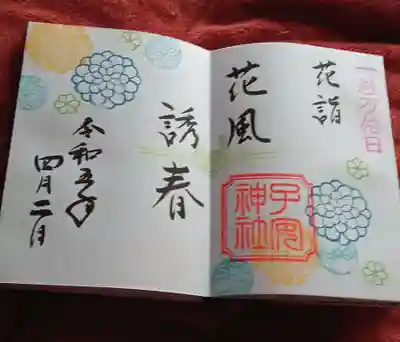 一粒万倍日
花詣
花風
子安神社
誘春
令和五年
四月二日